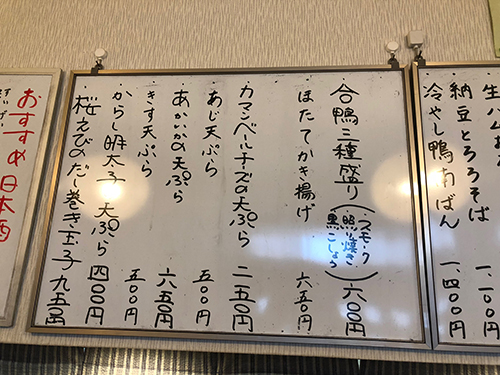 納豆とろろそば 一、一〇〇円
冷やし鴨南ばん 一、四〇〇円
・合鴨三種盛り（スモーク 照り焼き 黒こしょう） 六〇〇円
・ほたてかき揚げ 六五〇円
・カマンベールチーズの天ぷら 二五〇円
・あじ天ぷら 五〇〇円
・あかいかの天ぷら 六五〇円
・きす天ぷら 五〇〇円
・からし明太子天ぷら 四〇〇円
・桜えびのだし巻き玉子 九五〇円
おすすめ日本酒